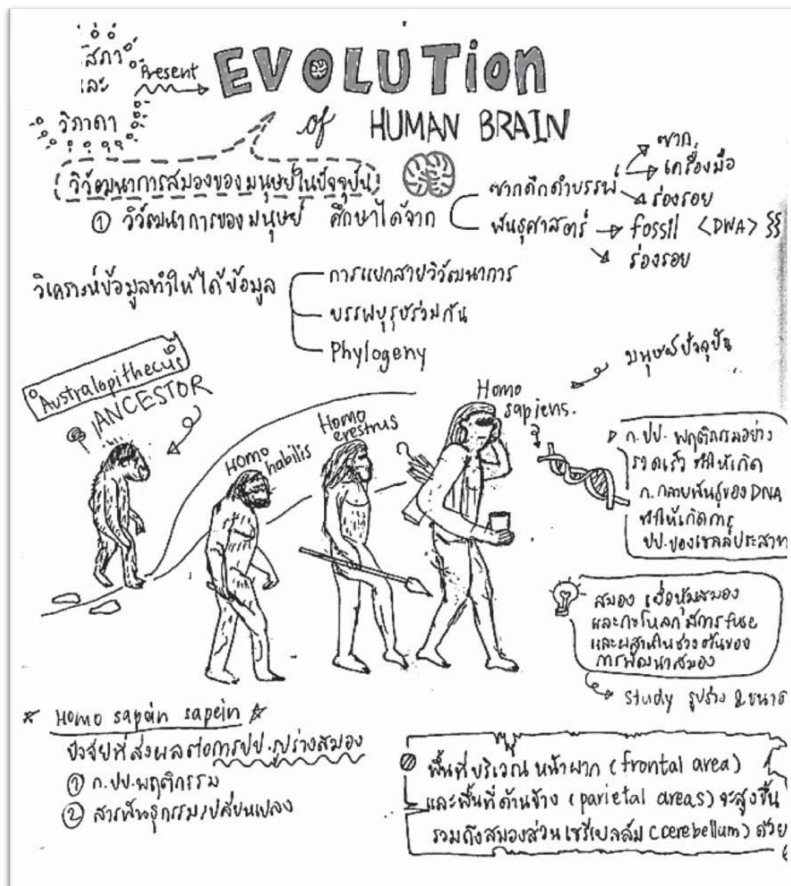 สภา
และ
วิภาดา
Present
EVOLUTion
of HUMAN BRAIN
(วิวัฒนาการสมองของมนุษย์ในปัจจุบัน)
① วิวัฒนาการของมนุษย์ ศึกษาได้จาก
ซากดึกดำบรรพ์
ซาก
เครื่องมือ
ร่องรอย
พันธุศาสตร์ → fossil <DNA>
ร่องรอย
วิเคราะห์ข้อมูลทำให้ได้ข้อมูล
การแยกสายวิวัฒนาการ
บรรพบุรุษร่วมกัน
Phylogeny
Australopithecus
ANCESTOR
Homo habilis
Homo erestrus
Homo sapiens.
มนุษย์ปัจจุบัน
ก.ปป. พฤติกรรมอย่าง
รวดเร็ว ทำให้เกิด
ก.กลายพันธุ์ของ DNA
ทำให้เกิดการ
ปป.ของเซลล์ประสาท
สมอง เยื่อหุ้มสมอง
และกะโหลก มีการ fuse
และผสานในช่วงต้นของ
การพัฒนาสมอง
study รูปร่าง & ขนาด
☆ Homo sapein sapein ☆
ปัจจัยที่ส่งผลต่อการปป.รูปร่างสมอง
① ก.ปป.พฤติกรรม
② สารพันธุกรรมเปลี่ยนแปลง
พื้นที่บริเวณ หน้าผาก (frontal area)
และพื้นที่ด้านข้าง (parietal areas) จะสูงขึ้น
รวมถึงสมองส่วนเซรีเบลลัม (cerebellum) ด้วย